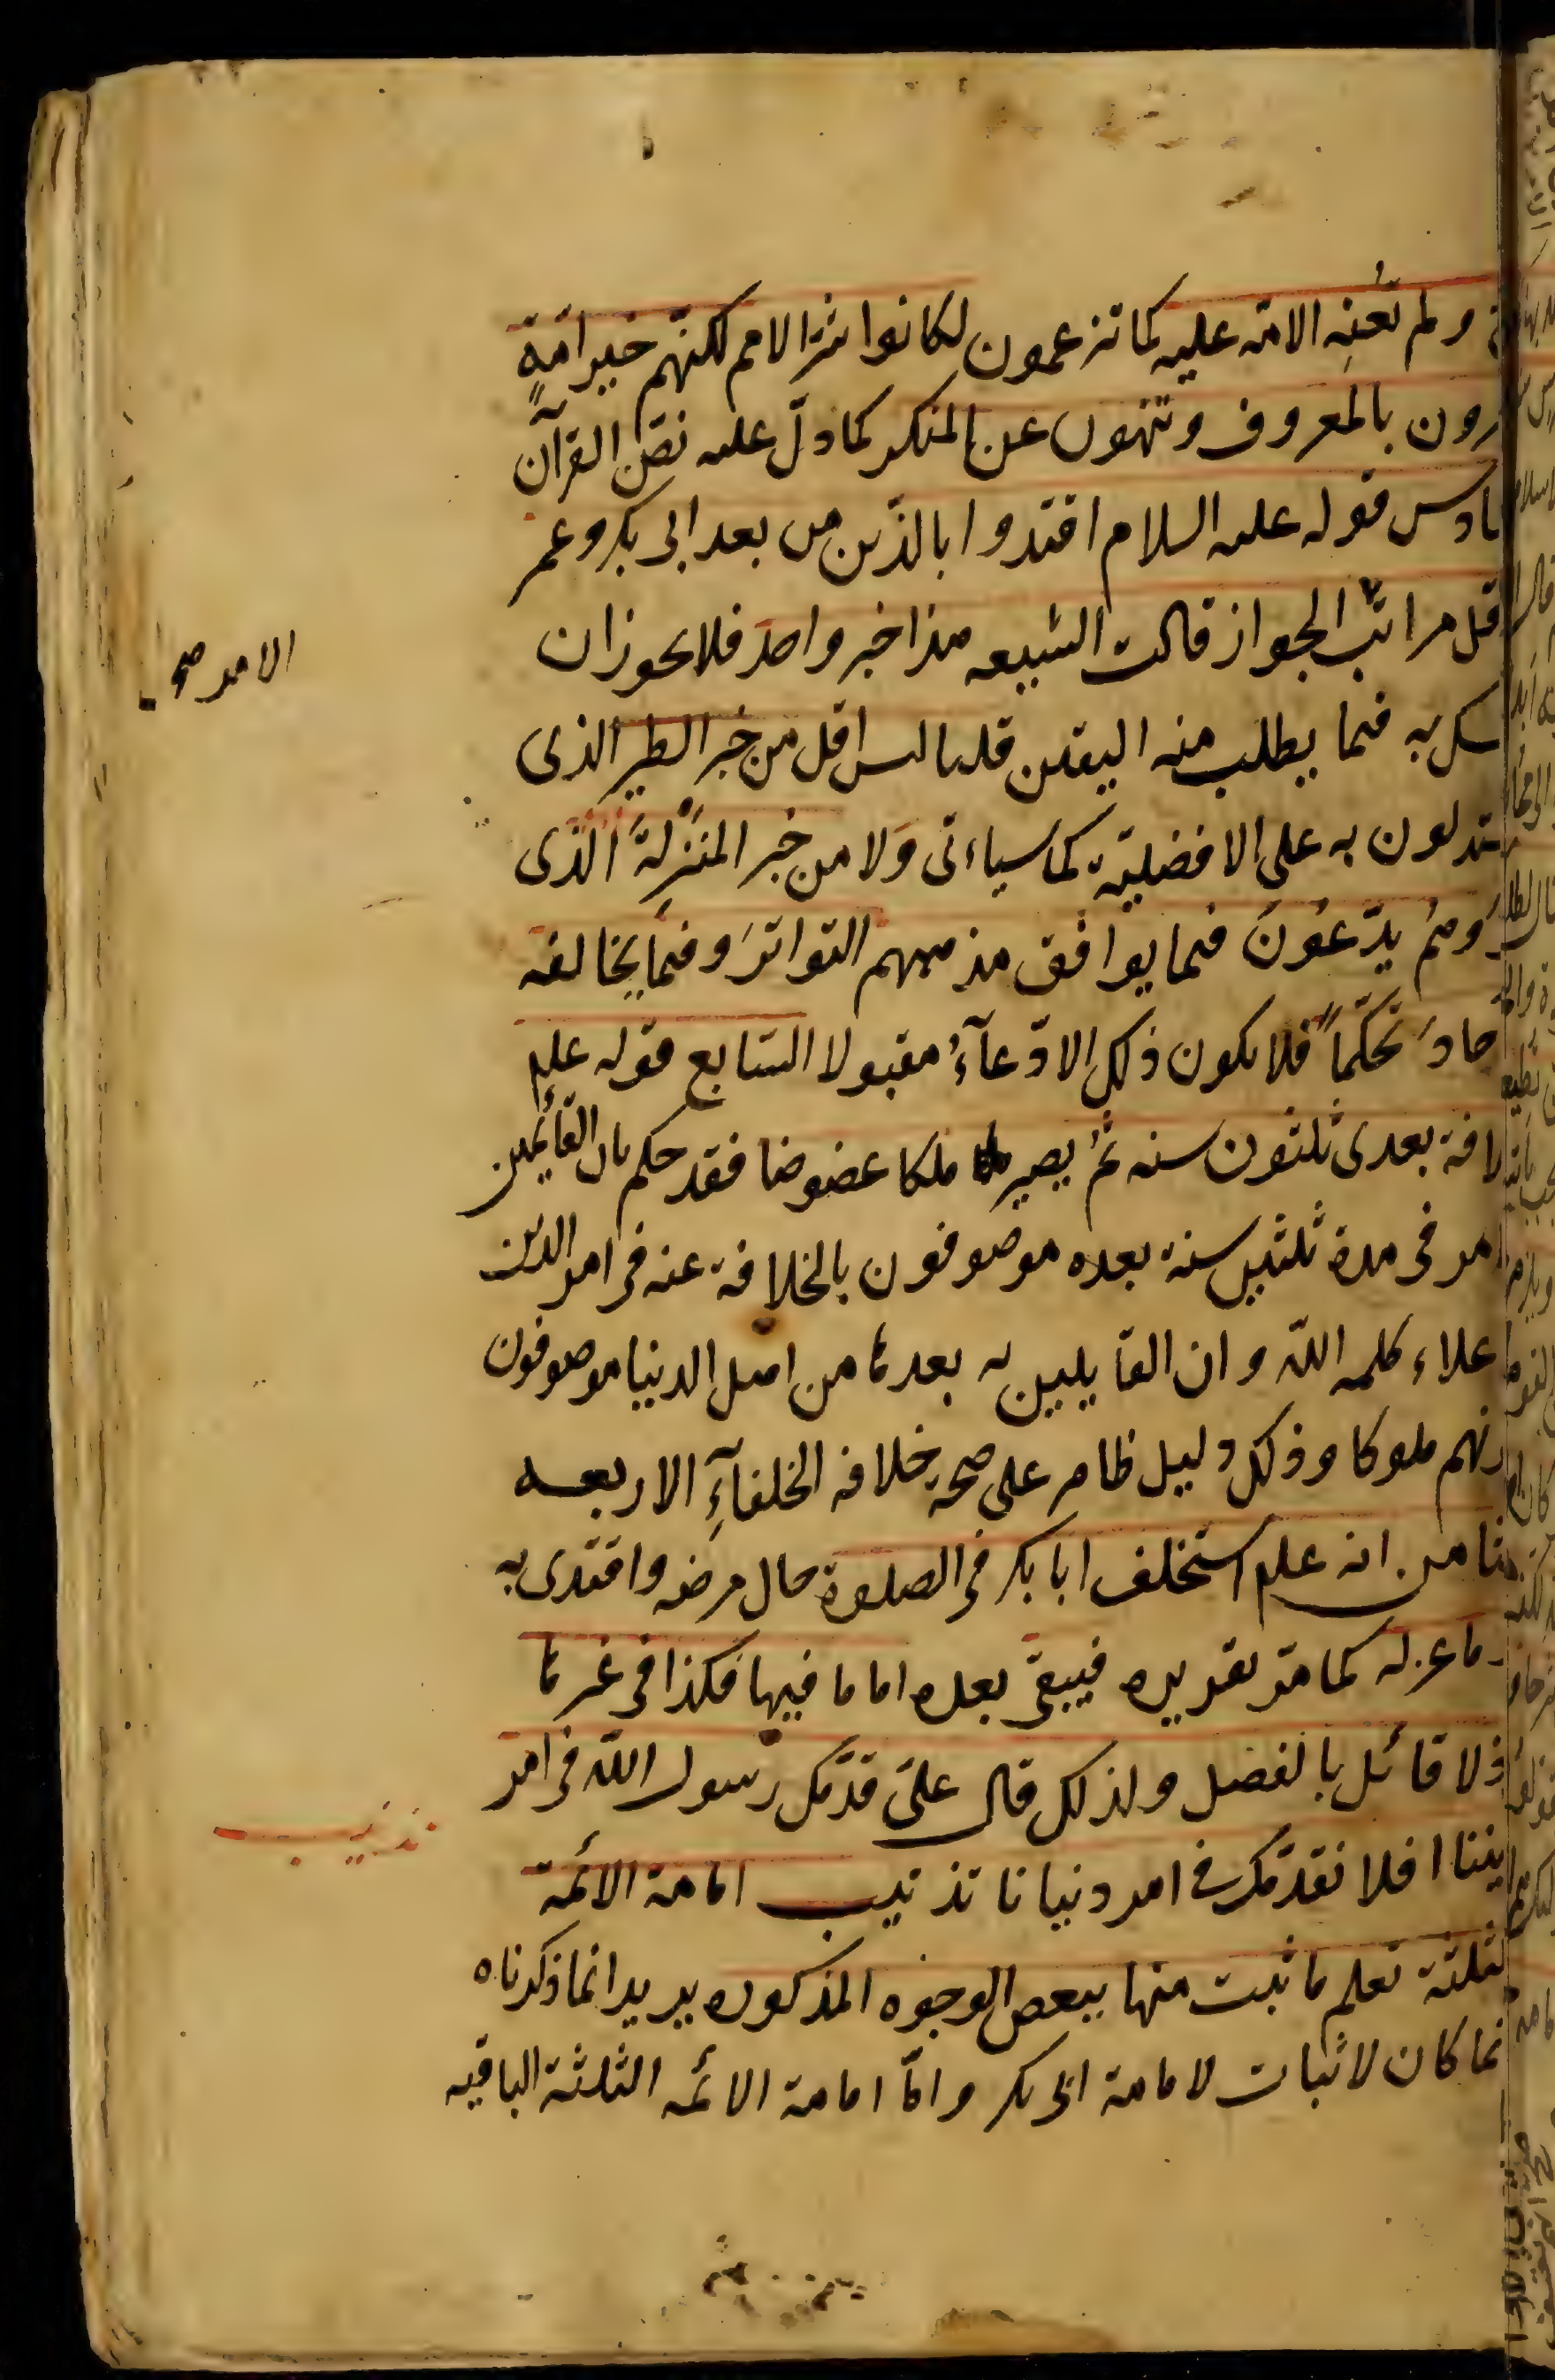 ولم تُعنِه الامّة عليه كما تزعمون لكانوا شرّ الامم لكنّهم خير امّةٍ
رون بالمعروف وتنهون عن المنكر كما دلّ عليه نصّ القرآن
ادس قوله عليه السلام اقتدوا بالذين من بعد ابى بكر وعمر
اقل مراتب الجواز قالت الشيعه هذا خبر واحد فلا يجوز ان
سك به فيما يطلب منه اليقين قلنا ليس اقل من خبر الطير الذى
تدلون به على الافضليّة كما سياءتى وَلا من خبر المنزلةَ الّذى
وَهُم يدّعُونَ فيما يوافق مذهبهم التواترَ وفيما يخالفه
حادَ تحكّماً فلا يكون ذلك الادّعآءُ مقبولا السّابع قوله علم
لافة بعدى ثلثون سنه ثمُ يصير ملكا عضوضا فقد حكم بان القائمين
امر فى مدة ثلثين سنة بعده موصوفون بالخلافة عنه فى امر الدين
اعلاء كلمه اللّه وان القايلين به بعدها من اهل الدنيا موصوفون
نهم ملوكا وذلك دليل ظاهر على صحّةِ خلافه الخلفآءِ الاربعه
ثامن انه علم استخلف ابا بكر فى الصلوة حال مرضه واقتدى به
ما عزله كما مرّ تقديره فيبقى بعده اماما فيها فكذا فى غيرها
ذ لا قائل بالفصل ولذلك قال علىّ قدّمك رسول اللّه فى امر
يننا افلا نقدّمك فى امر دنيانا تذنيب امامة الائمّة
لثلثة تعلم ما ثبت منها ببعض الوجوه المذكوره يريد انما ذكرناه
نما كان لاثبات لامامة ابى بكر وامّا امامة الائمه الثلثة الباقيه
الامر صح
تذنيب